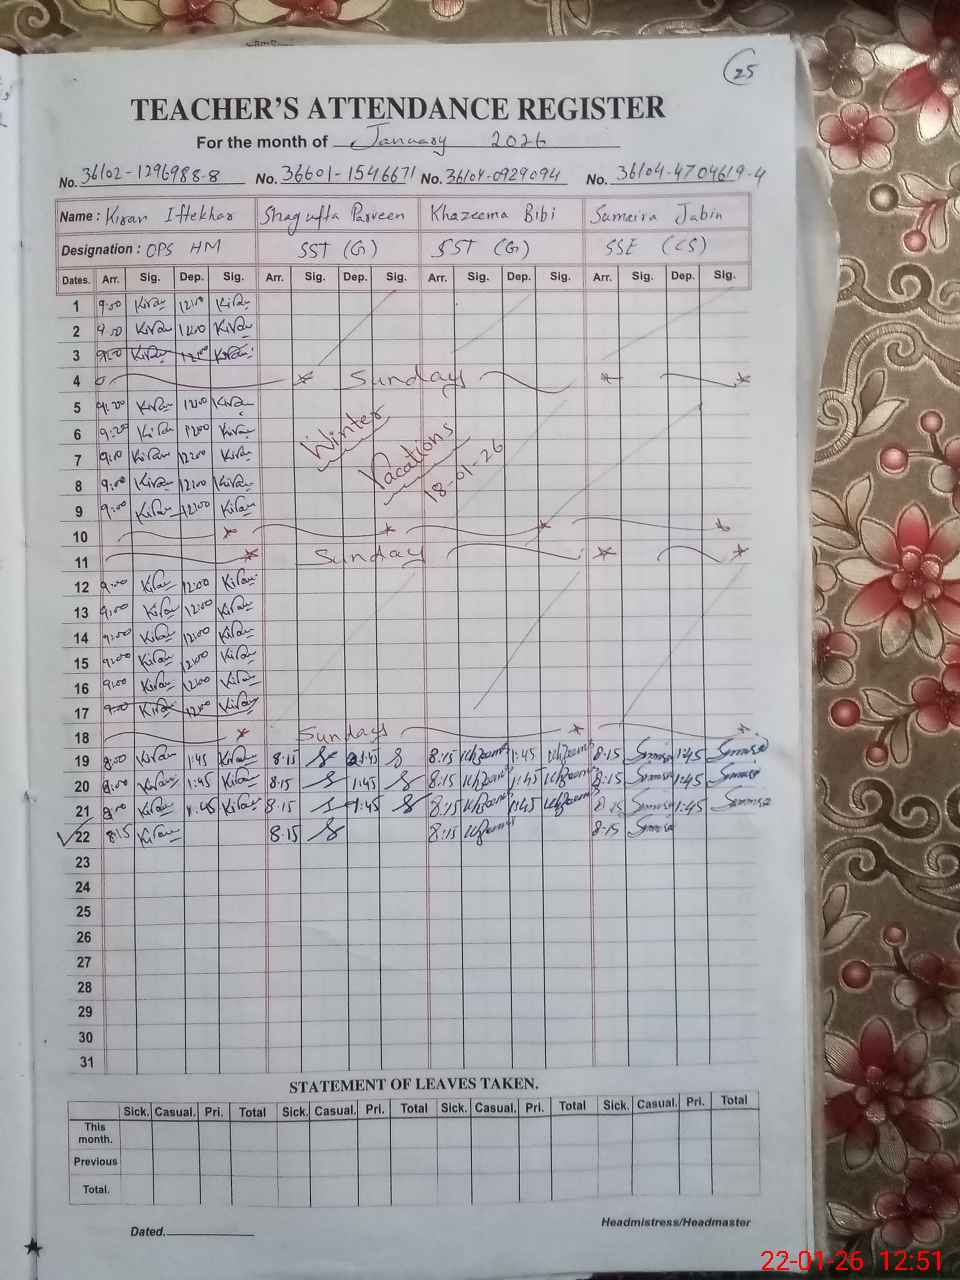 25
TEACHER'S ATTENDANCE REGISTER
For the month of January 2026
No. 36102-1296988-8 No. 36601-1546671 No. 36104-0929094 No. 36104-4704619-4
Name : Kiran Iftekhar Shagufta Parveen Khazeema Bibi Sumaira Jabin
Designation : OPS HM SST (G) SST (G) SSE (CS)
Dates. Arr. Sig. Dep. Sig. Arr. Sig. Dep. Sig. Arr. Sig. Dep. Sig. Arr. Sig. Dep. Sig.
1 9:00 Kiran 12:00 Kiran
2 9:00 Kiran 12:00 Kiran
3 9:00 Kiran 12:00 Kiran
4 Sunday
5 Kiran 1200 Kiran
6 Kiran 1200 Kiran
Winter
7 Kiran 1200 Kiran
Vacations
8 9:00 Kiran 12:00 Kiran
18-01-26
9 9:00 Kiran 12:00 Kiran
10
11 Sunday
12 9:00 Kiran 12:00 Kiran
13 9:00 Kiran 12:00 Kiran
14 9:00 Kiran 12:00 Kiran
15 9:00 Kiran 12:00 Kiran
16 9:00 Kiran 12:00 Kiran
17 9:00 Kiran 12:00 Kiran
18 Sunday
19 8:00 Kiran 1:45 Kiran 8:15 1:45 8:15 1:45 8:15 1:45
20 8:00 Kiran 1:45 Kiran 8:15 1:45 8:15 1:45 8:15 1:45
21 Kiran 1:45 Kiran 8:15 1:45 8:15 1:45 8:15 1:45
22 8:15 Kiran 8:15 8:15 8:15
23
24
25
26
27
28
29
30
31
STATEMENT OF LEAVES TAKEN.
Sick. Casual. Pri. Total Sick. Casual. Pri. Total Sick. Casual. Pri. Total Sick. Casual. Pri. Total
This
month.
Previous
Total.
Dated.
Headmistress/Headmaster
22-01-26 12:51